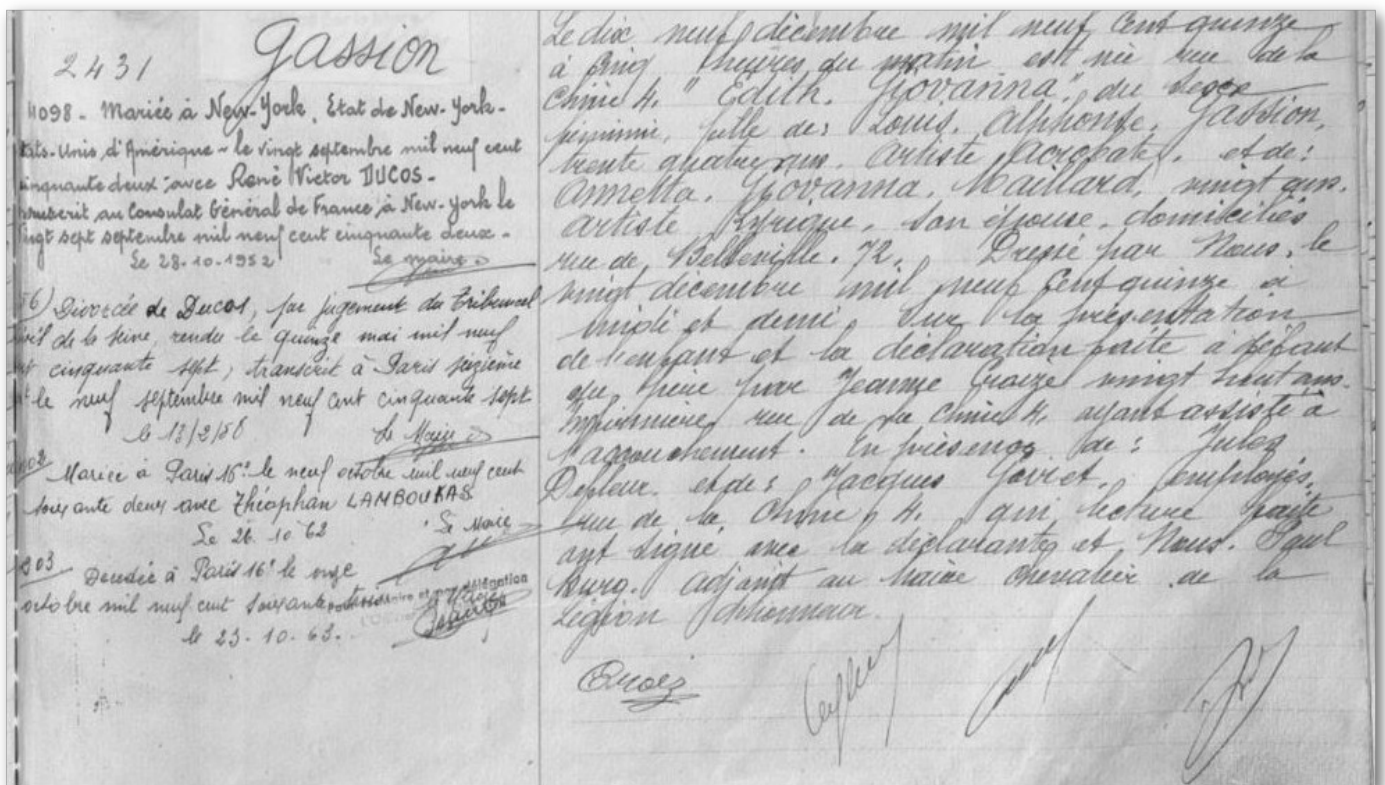 2431
Gassion
4098 - Mariée à New-York, Etat de New-York -
Etats-Unis d'Amérique - le vingt septembre mil neuf cent
cinquante deux avec René Victor DUCOS -
transcrit au Consulat Général de France à New-York le
vingt sept septembre mil neuf cent cinquante deux -
Le 28-10-1952 Le maire
Divorcée de Ducos, par jugement du Tribunal
civil de la Seine, rendu le quinze mai mil neuf
cent cinquante sept, transcrit à Paris seizième
le neuf septembre mil neuf cent cinquante sept
Le Maire
Mariée à Paris 16e le neuf octobre mil neuf cent
soixante deux avec Théophan LAMBOUKAS
Le 26.10 62 Le Maire
Décédée à Paris 16e le onze
octobre mil neuf cent soixante
le 23.10.63.
Le dix neuf décembre mil neuf cent quinze
à cinq heures du matin est née rue de la
Chine 4, "Edith, Giovanna", du sexe
féminin, fille de: Louis, Alphonse, Gassion,
trente quatre ans, artiste acrobate, et de:
Annetta, Giovanna, Maillard, vingt ans,
artiste lyrique, son épouse, domiciliés
rue de Belleville, 72. Dressé par Nous, le
vingt décembre mil neuf cent quinze à
midi et demi, sur la présentation
de l'enfant et la déclaration faite à défaut
du père par Jeanne Croize vingt huit ans,
infirmière, rue de la Chine 4, ayant assisté à
l'accouchement. En présence de: Jules
et de: Jacques Goviet, employés,
rue de la Chine, 4, qui lecture faite
ont signé avec la déclarante et Nous. Paul
Burg, adjoint au maire chevalier de la
Légion d'honneur.
Croize